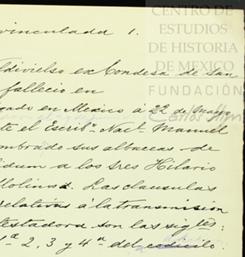 CENTRO DE
ESTUDIOS
DE HISTORIA
DE MEXICO
FUNDACIÓN
vinculada 1.
ldivielso ex Condesa de San
fallecio en
gado en Mexico á 22 de
te el Escribº Nacl. Manuel
mbrado sus albaceas de
idum a los tres Hilario
Molinos. Las clausulas
relativas á la transmision
testadora son las sigtes:
1ª 2, 3 y 4ª del codicilo: